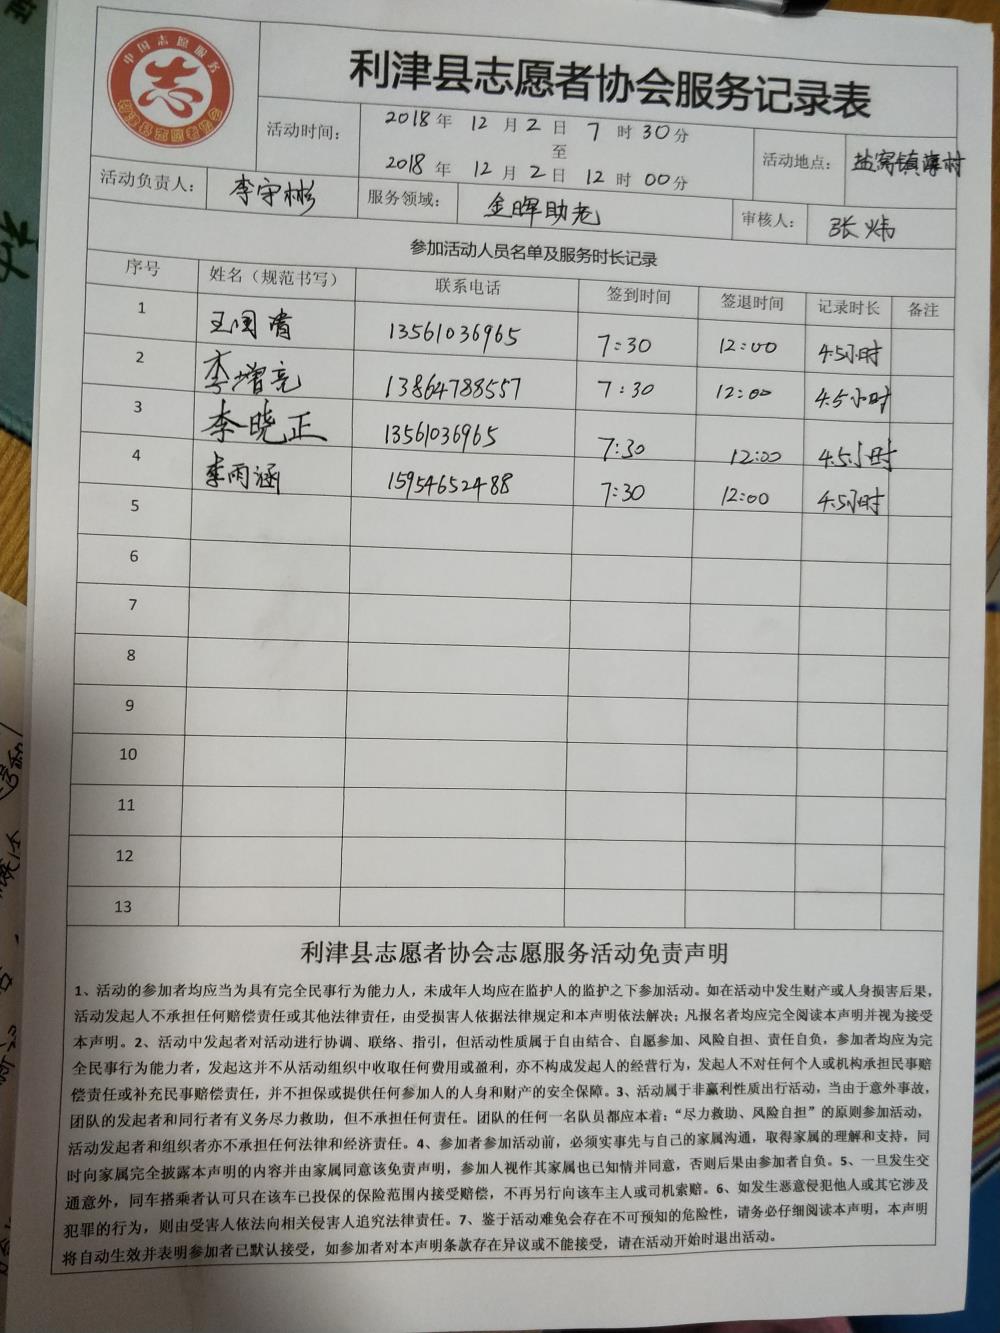 中国志愿服务
志
利津县志愿者协会
利津县志愿者协会服务记录表
活动时间： 2018年 12月2日 7时30分
至
2018年 12月2日 12时00分
活动地点： 盐窝镇 村
活动负责人： 李守彬 服务领域： 金晖助老 审核人： 张炜
参加活动人员名单及服务时长记录
序号 姓名（规范书写） 联系电话 签到时间 签退时间 记录时长 备注
1 王国清 13561036965 7:30 12:00 4.5小时
2 李增亮 13864788557 7:30 12:00 4.5小时
3 李晓正 13561036965 7:30 12:00 4.5小时
4 李雨涵 15954652488 7:30 12:00 4.5小时
5
6
7
8
9
10
11
12
13
利津县志愿者协会志愿服务活动免责声明
1、活动的参加者均应当为具有完全民事行为能力人，未成年人均应在监护人的监护之下参加活动。如在活动中发生财产或人身损害后果，
活动发起人不承担任何赔偿责任或其他法律责任，由受损害人依据法律规定和本声明依法解决；凡报名者均应完全阅读本声明并视为接受
本声明。2、活动中发起者对活动进行协调、联络、指引，但活动性质属于自由结合、自愿参加、风险自担、责任自负，参加者均应为完
全民事行为能力者，发起这并不从活动组织中收取任何费用或盈利，亦不构成发起人的经营行为，发起人不对任何个人或机构承担民事赔
偿责任或补充民事赔偿责任，并不担保或提供任何参加人的人身和财产的安全保障。3、活动属于非赢利性质出行活动，当由于意外事故，
团队的发起者和同行者有义务尽力救助，但不承担任何责任。团队的任何一名队员都应本着：“尽力救助、风险自担”的原则参加活动，
活动发起者和组织者亦不承担任何法律和经济责任。4、参加者参加活动前，必须实事先与自己的家属沟通，取得家属的理解和支持，同
时向家属完全披露本声明的内容并由家属同意该免责声明，参加人视作其家属也已知情并同意，否则后果由参加者自负。5、一旦发生交
通意外，同车搭乘者认可只在该车已投保的保险范围内接受赔偿，不再另行向该车主人或司机索赔。6、如发生恶意侵犯他人或其它涉及
犯罪的行为，则由受害人依法向相关侵害人追究法律责任。7、鉴于活动难免会存在不可预知的危险性，请务必仔细阅读本声明，本声明
将自动生效并表明参加者已默认接受，如参加者对本声明条款存在异议或不能接受，请在活动开始时退出活动。